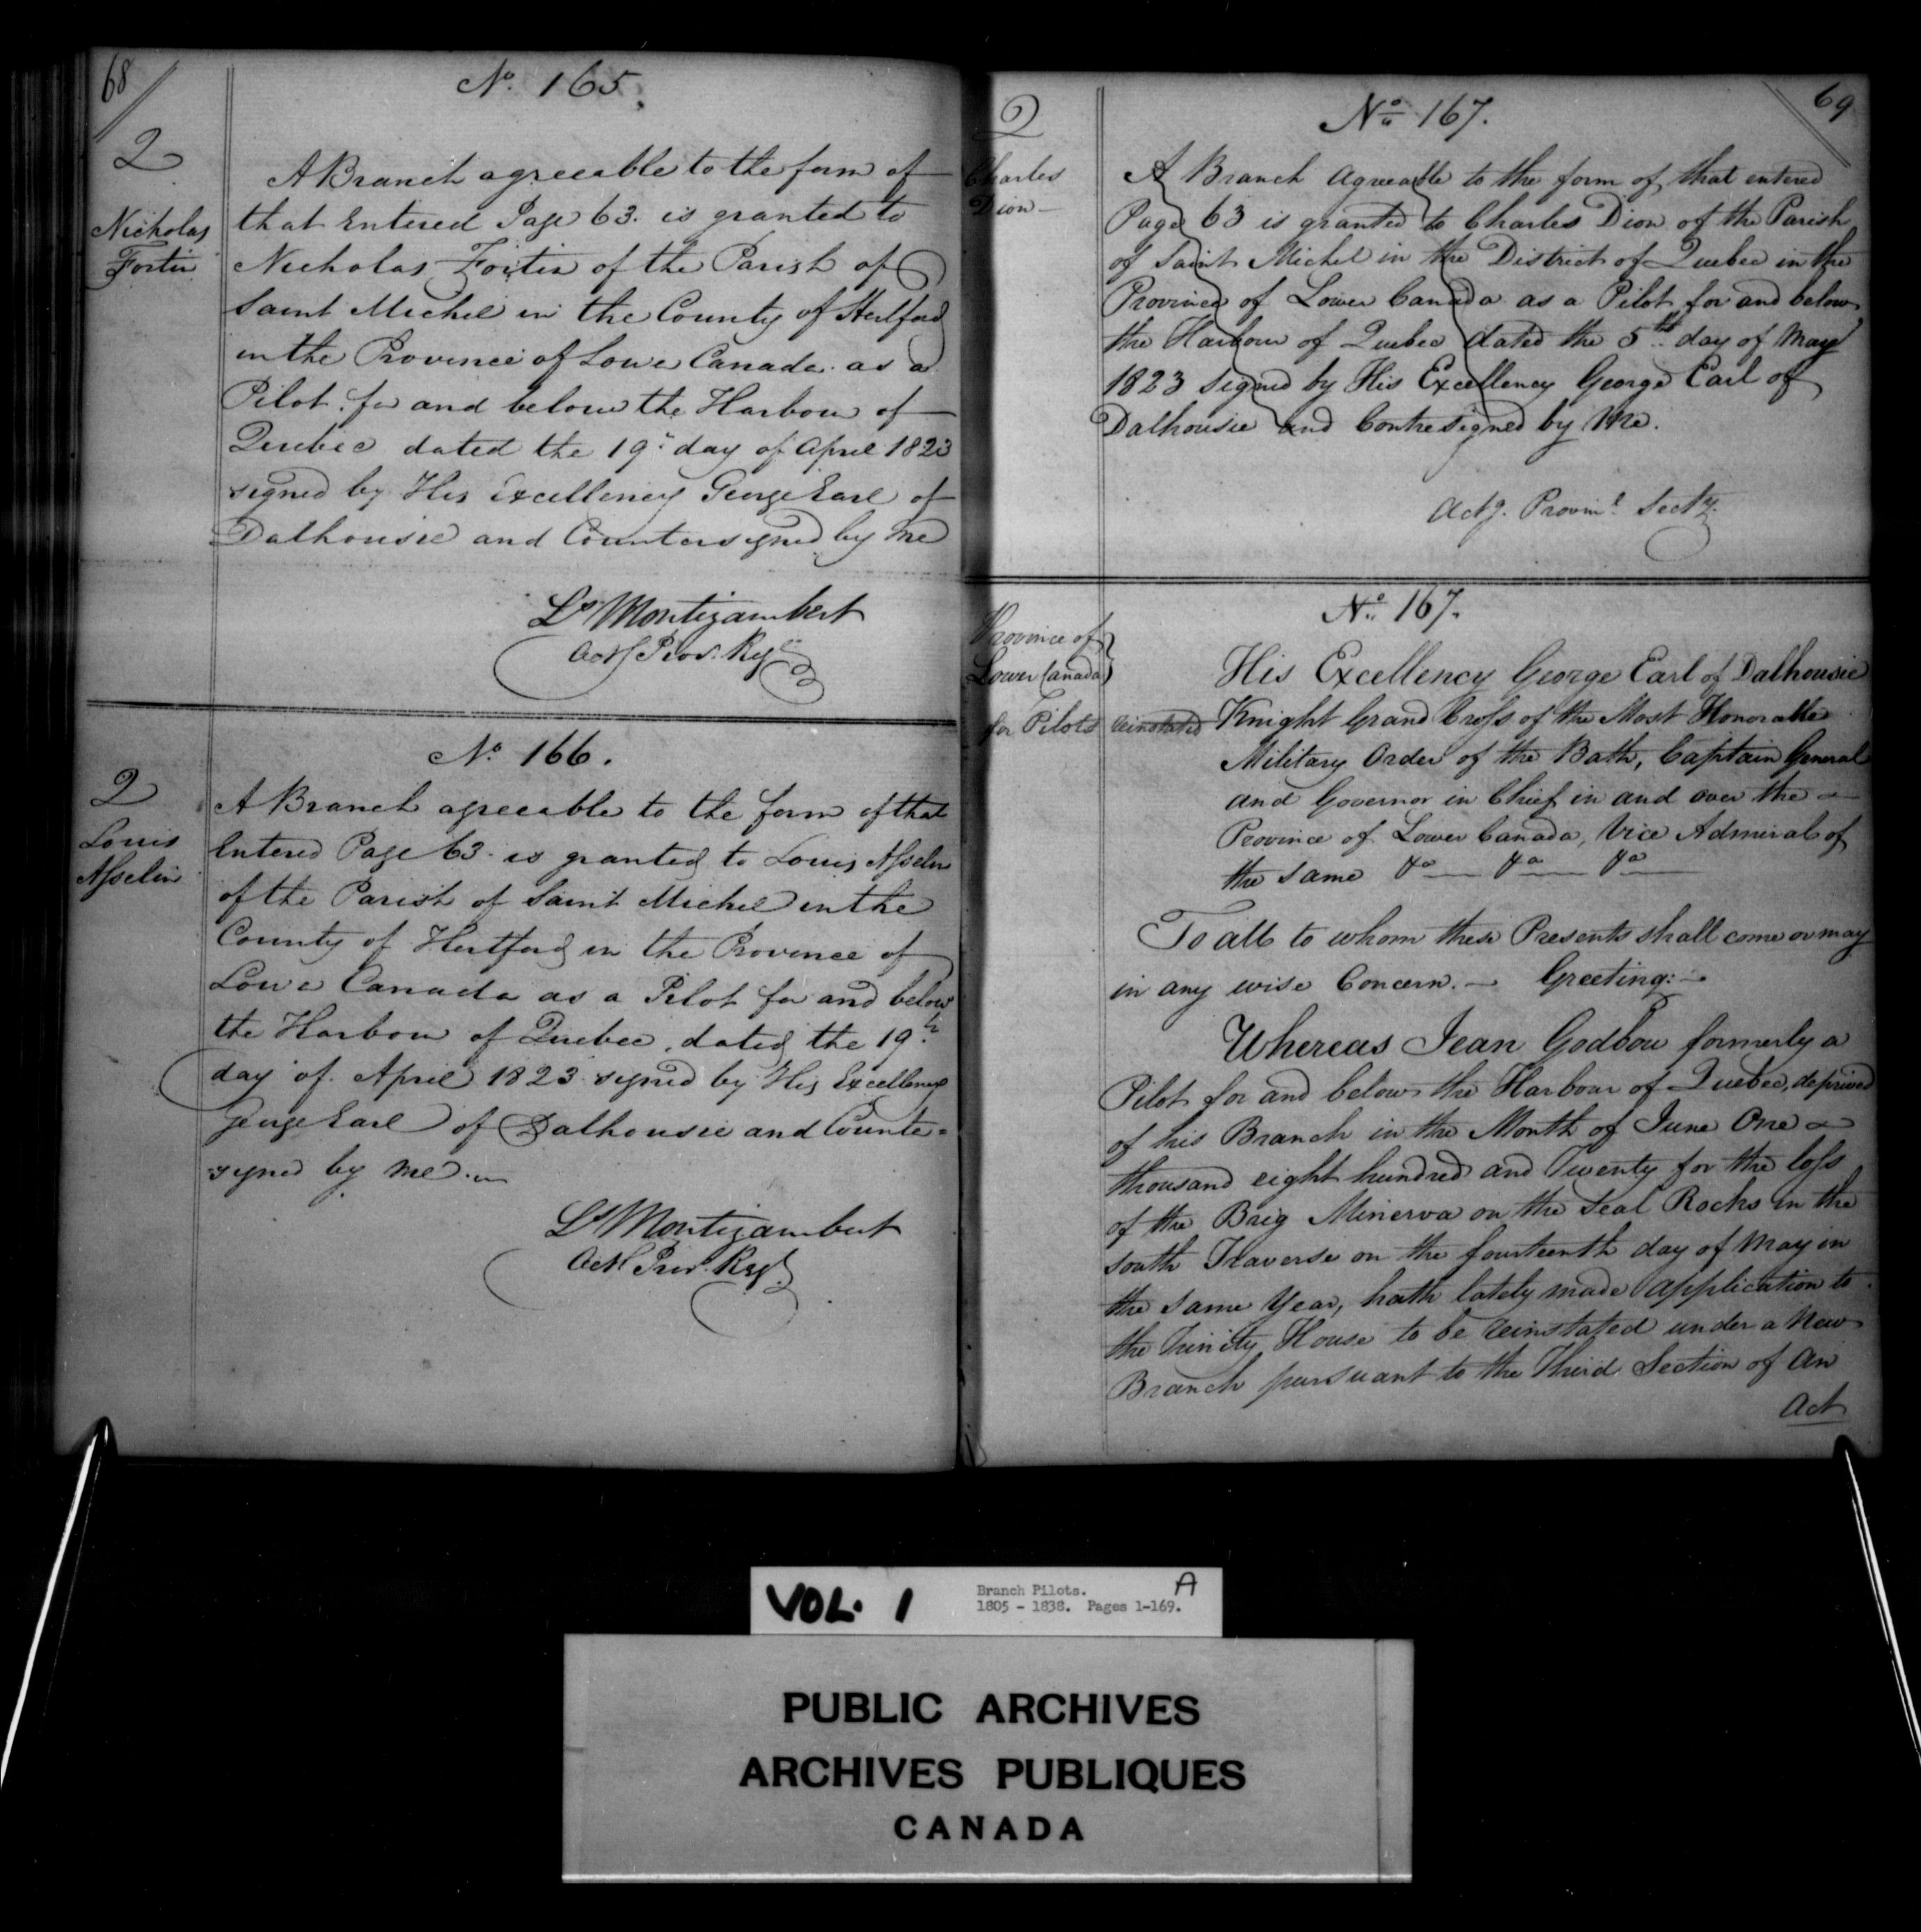 68
No. 165.
2
Nicholas
Fortin
A Branch agreeable to the form of
that Entered Page 63. is granted to
Nicholas Fortin of the Parish of
Saint Michel in the County of Hertford
in the Province of Lower Canada as a
Pilot for and below the Harbour of
Quebec dated the 19th day of April 1823
signed by His Excellency George Earl of
Dalhousie and Countersigned by me
Ls Montizambert
Actg Prov. Regr
No. 166.
2
Louis
Asselin
A Branch agreeable to the form of that
Entered Page 63. is granted to Louis Asselin
of the Parish of Saint Michel in the
County of Hertford in the Province of
Lower Canada as a Pilot for and below
the Harbour of Quebec, dated the 19th
day of April 1823 signed by His Excellency
George Earl of Dalhousie and Counter=
signed by me.
Ls Montizambert
Actg Prov. Regr
69
No. 167.
2
Charles
Dion
A Branch Agreeable to the form of that entered
Page 63 is granted to Charles Dion of the Parish
of Saint Michel in the District of Quebec in the
Province of Lower Canada as a Pilot for and below
the Harbour of Quebec dated the 5th day of May
1823 signed by His Excellency George Earl of
Dalhousie and Contresigned by Me.
Actg. Provinl. Secty.
No. 167.
Province of
Lower Canada
for Pilots reinstated
His Excellency George Earl of Dalhousie
Knight Grand Cross of the Most Honorable
Military Order of the Bath, Captain General
and Governor in Chief in and over the
Province of Lower Canada, Vice Admiral of
the same &a &a &a
To all to whom these Presents shall come or may
in any wise Concern. — Greeting: —
Whereas Jean Godbou formerly a
Pilot for and below the Harbour of Quebec, deprived
of his Branch in the Month of June One
thousand eight hundred and Twenty for the loss
of the Brig Minerva on the Seal Rocks in the
south Traverse on the fourteenth day of May in
the same Year, hath lately made application to
the Trinity House to be reinstated under a New
Branch pursuant to the Third Section of An
Act
VOL. 1
Branch Pilots.
1805 - 1838. Pages 1-169.
A
PUBLIC ARCHIVES
ARCHIVES PUBLIQUES
CANADA